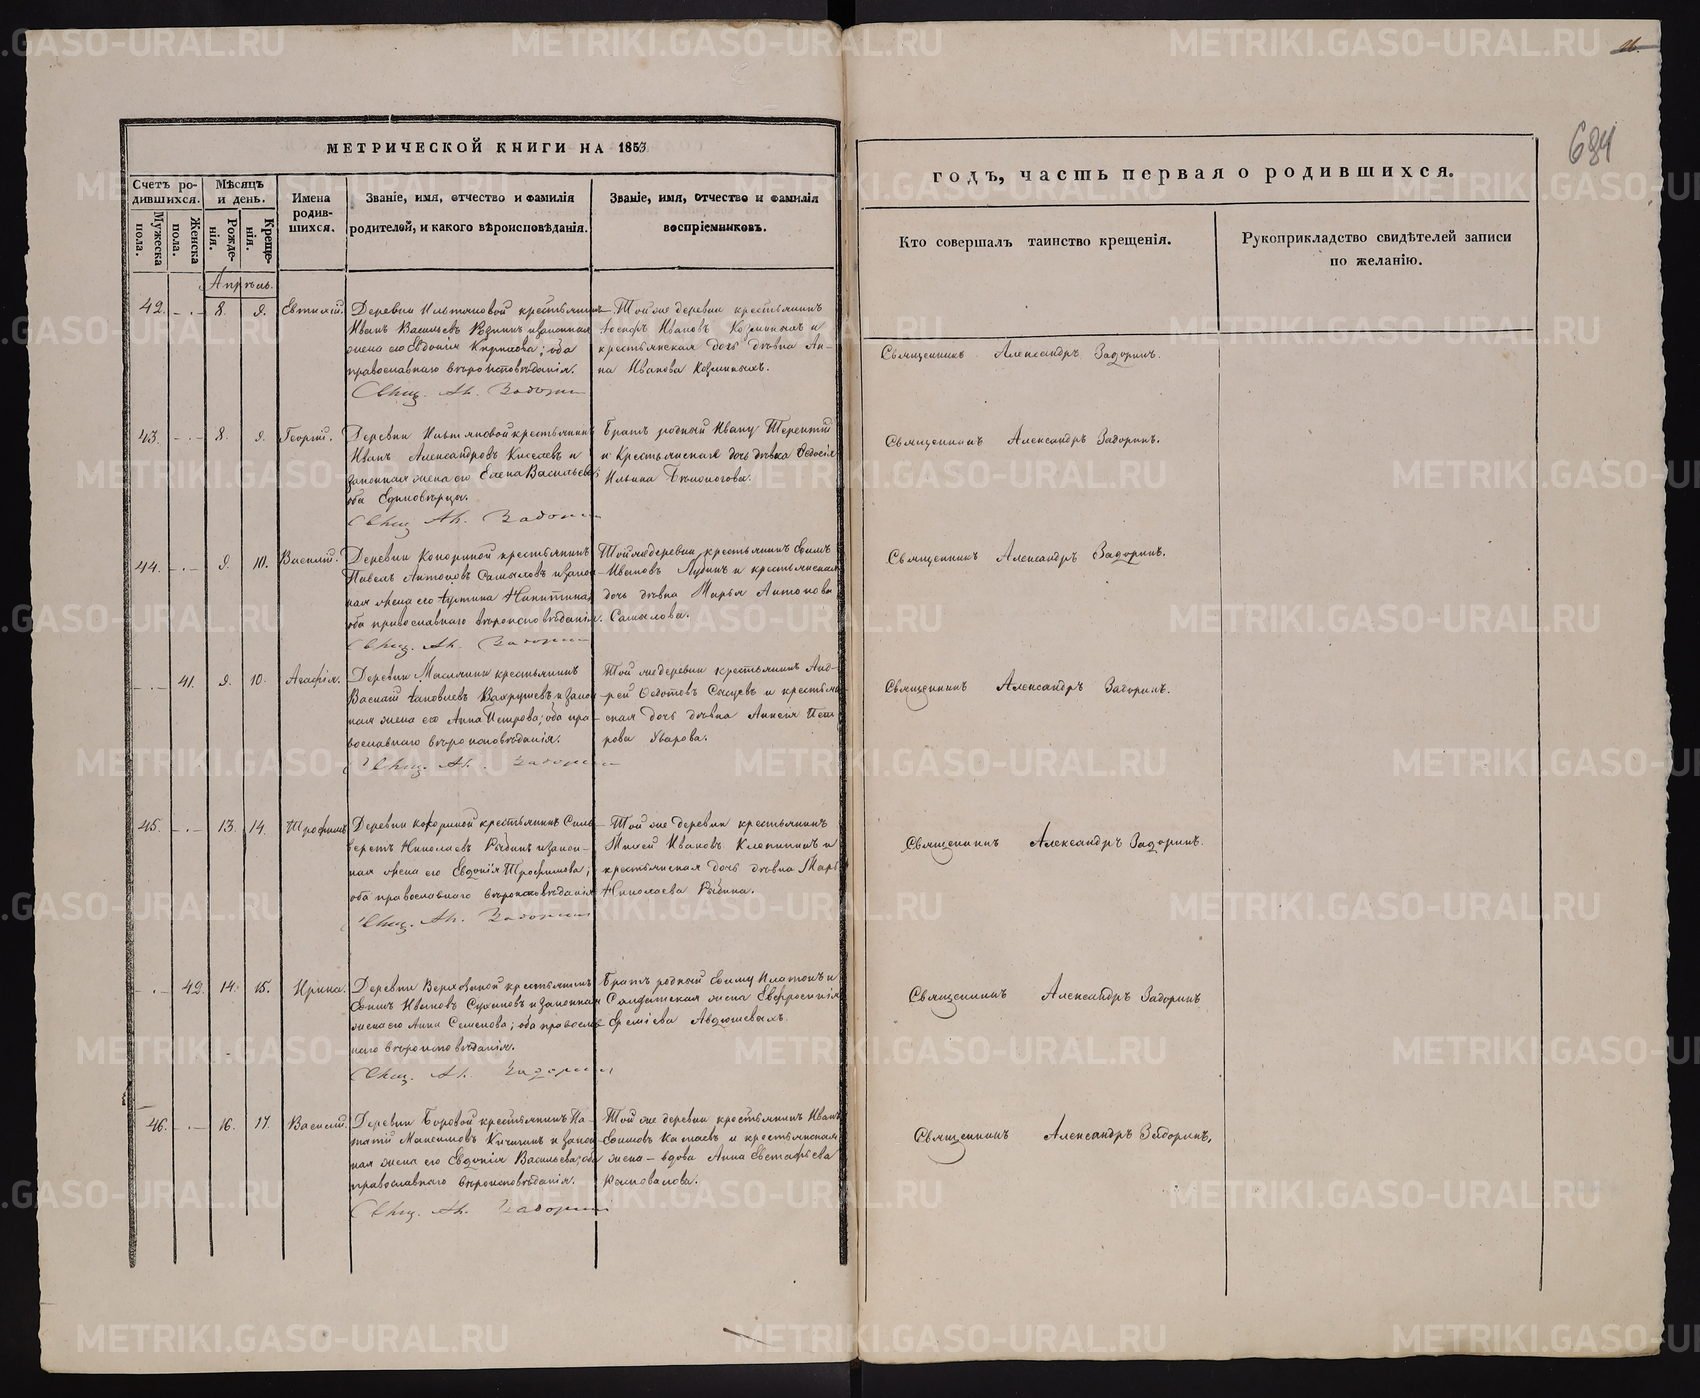 26.
694
МЕТРИЧЕСКОЙ КНИГИ НА 1853
годъ, часть первая о родившихся.
Счетъ родившихся.
Мужеска пола.
Женска пола.
Мѣсяцъ и день.
Рожденія.
Крещенія.
Имена родившихся.
Званіе, имя, отчество и фамилія
родителей, и какого вѣроисповѣданія.
Званіе, имя, отчество и фамилія
воспріемниковъ.
Кто совершалъ таинство крещенія.
Рукоприкладство свидѣтелей записи
по желанію.
Апрѣль.
42. 8. 9. Евтихій.
Деревни крестьянинъ
Иванъ Васильевъ и законная
жена его Евдокія Кирилова; оба
православнаго вѣроисповѣданія.
Свящ. Ал. Задорин
Той же деревни крестьянинъ
Іосифъ Ивановъ и
крестьянская дочь дѣвка Ан-
на Иванова
Священникъ Александръ Задоринъ.
43. 8. 9. Георгій.
Деревни крестьянинъ
Иванъ Александровъ Киселевъ и
законная жена его Елена Васильева;
оба Единовѣрцы.
Свящ Ал. Задорин
Братъ родный Ивану Терентій
и Крестьянская дочь дѣвка Ѳедосія
Ильина Бѣлоногова.
Священникъ Александръ Задоринъ.
44. 9. 10. Василій.
Деревни Кокориной крестьянинъ
Павелъ Антоновъ Самыловъ и закон-
ная жена его Никитина,
оба православнаго вѣроисповѣданія.
Свящ. Ал. Задорин
Той же деревни крестьянинъ Ефимъ
Ивановъ и крестьянская
дочь дѣвка Марья Антонова
Самылова.
Священникъ Александръ Задоринъ.
41. 9. 10. Агафія.
Деревни крестьянинъ
Василій Яковлевъ Вахрушевъ и закон-
ная жена его Анна Петрова; оба пра-
вославнаго вѣроисповѣданія.
Свящ. Ал. Задорин
Той же деревни крестьянинъ Анд-
рей Ѳедотовъ и крестьян-
ская дочь дѣвка Анисія Пет-
рова Уварова.
Священникъ Александръ Задоринъ.
45. 13. 14. Трофимъ.
Деревни Кокориной крестьянинъ Силь-
верстъ Николаевъ и закон-
ная жена его Евдокія Трофимова;
оба православнаго вѣроисповѣданія
Свящ. Ал. Задорин
Той же деревни крестьянинъ
Ивановъ Клепининъ и
крестьянская дочь дѣвка Марья
Николаева
Священникъ Александръ Задоринъ.
42. 14. 15. Ирина.
Деревни крестьянинъ
Ефимъ Ивановъ и законная
жена его Анна Семенова; оба православ-
наго вѣроисповѣданія.
Свящ. Ал. Задорин
Братъ родный Ефиму Платонъ и
Солдатская жена Евфросинія
Еремѣева Авдюшевыхъ.
Священникъ Александръ Задоринъ
46. 16. 17. Василій.
Деревни Боровой крестьянинъ Иг-
натій Максимовъ Кичигинъ и закон-
ная жена его Евдокія Васильева; оба
православнаго вѣроисповѣданія.
Свящ. Ал. Задорин
Той же деревни крестьянинъ Иванъ
Ефимовъ и крестьянская
жена – вдова Анна Евстафьева
Коновалова.
Священникъ Александръ Задоринъ.
METRIKI.GASO-URAL.RU